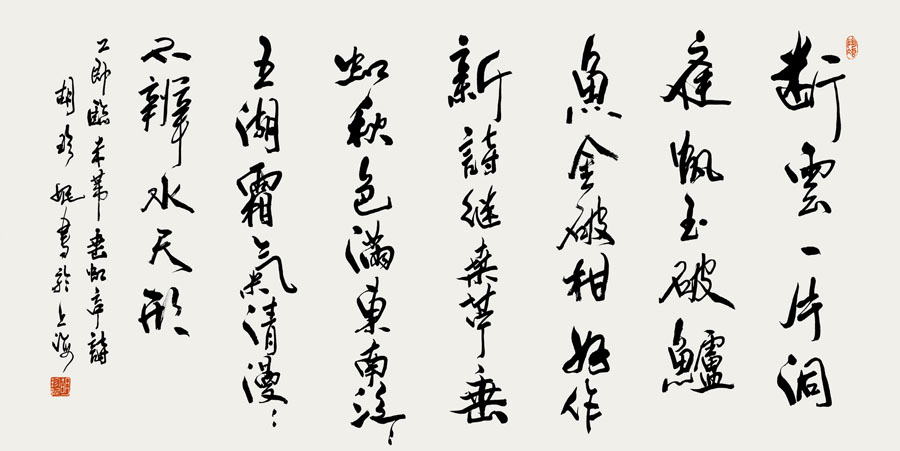 斷雲一片洞
庭帆玉破鱸
魚金破柑好作
新詩继桑苧垂
虹秋色滿東南泛〻
五湖霜氣清漫〻
不辨水天形
臨米芾垂虹亭詩
胡書於上海